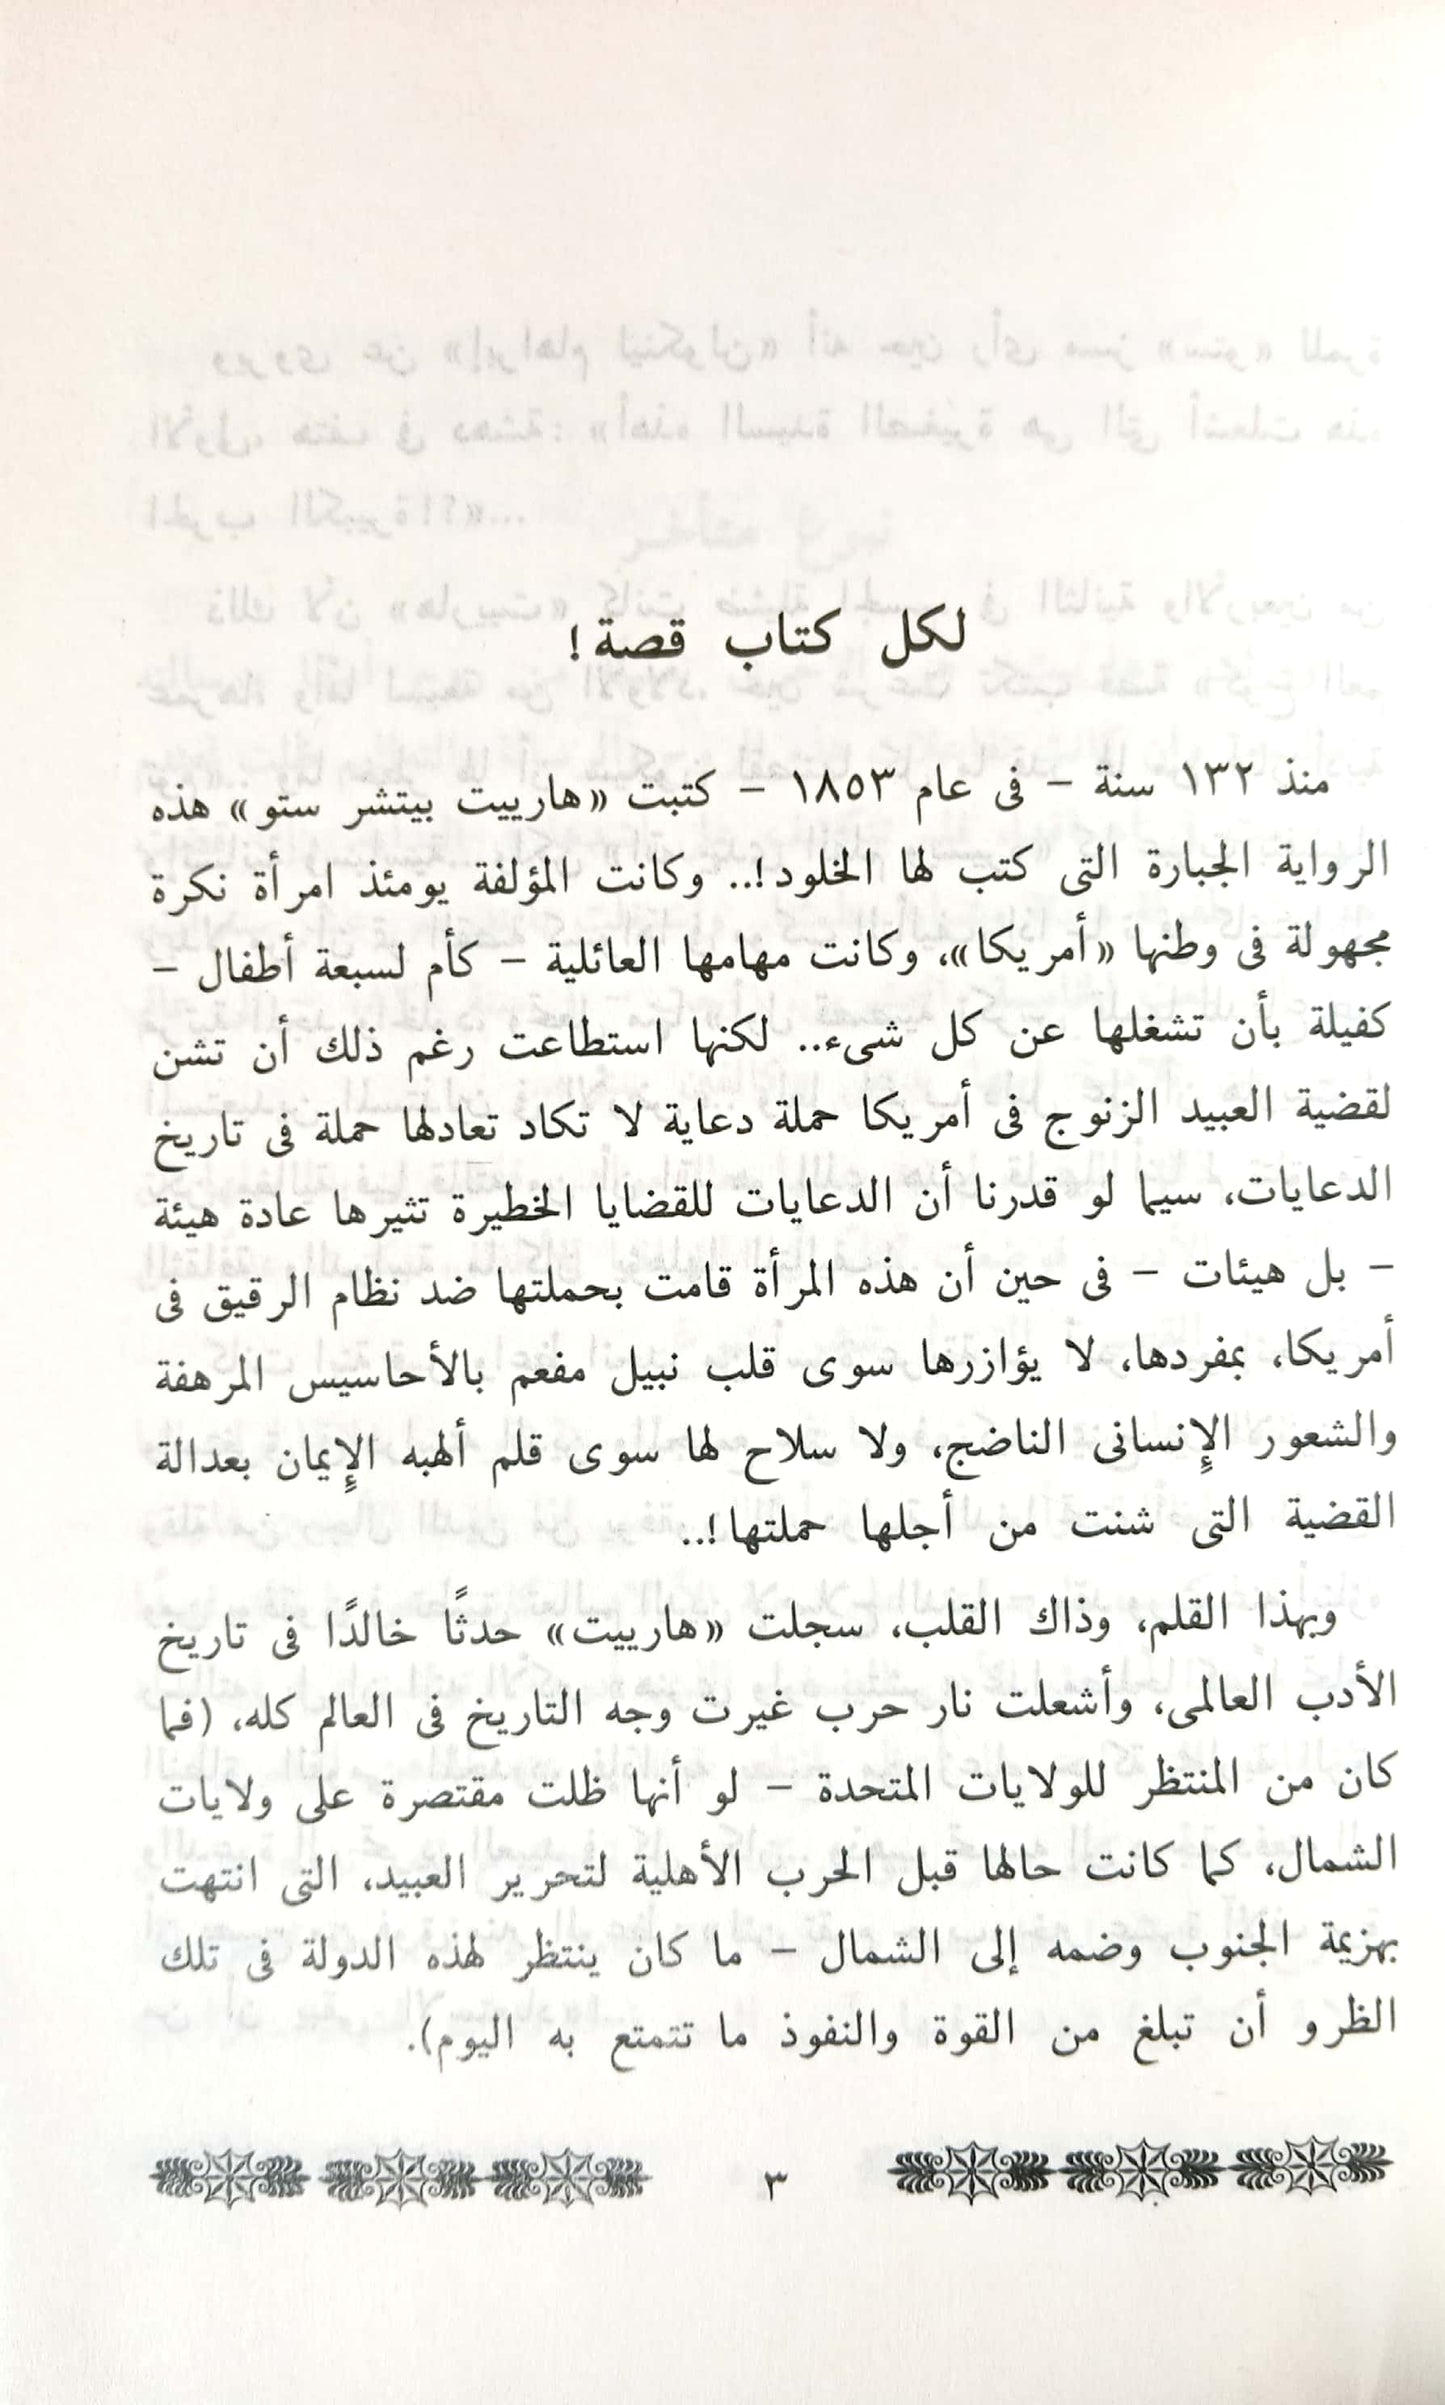 لكل كتاب قصة!
منذ ١٣٢ سنة – فى عام ١٨٥٣ – كتبت «هارييت بيتشر ستو» هذه
الرواية الجبارة التى كتب لها الخلود!.. وكانت المؤلفة يومئذ امرأة نكرة
مجهولة فى وطنها «أمريكا»، وكانت مهامها العائلية – كأم لسبعة أطفال –
كفيلة بأن تشغلها عن كل شىء.. لكنها استطاعت رغم ذلك أن تشن
لقضية العبيد الزنوج فى أمريكا حملة دعاية لا تكاد تعادلها حملة فى تاريخ
الدعايات، سيما لو قدرنا أن الدعايات للقضايا الخطيرة تثيرها عادة هيئة
– بل هيئات – فى حين أن هذه المرأة قامت بحملتها ضد نظام الرقيق فى
أمريكا، بمفردها، لا يؤازرها سوى قلب نبيل مفعم بالأحاسيس المرهفة
والشعور الإنسانى الناضج، ولا سلاح لها سوى قلم ألهبه الإيمان بعدالة
القضية التى شنت من أجلها حملتها!..
وبهذا القلم، وذاك القلب، سجلت «هارييت» حدثًا خالدًا فى تاريخ
الأدب العالمى، وأشعلت نار حرب غيرت وجه التاريخ فى العالم كله، (فما
كان من المنتظر للولايات المتحدة – لو أنها ظلت مقتصرة على ولايات
الشمال، كما كانت حالها قبل الحرب الأهلية لتحرير العبيد، التى انتهت
بهزيمة الجنوب وضمه إلى الشمال – ما كان ينتظر لهذه الدولة فى تلك
الظرو أن تبلغ من القوة والنفوذ ما تتمتع به اليوم).
٣